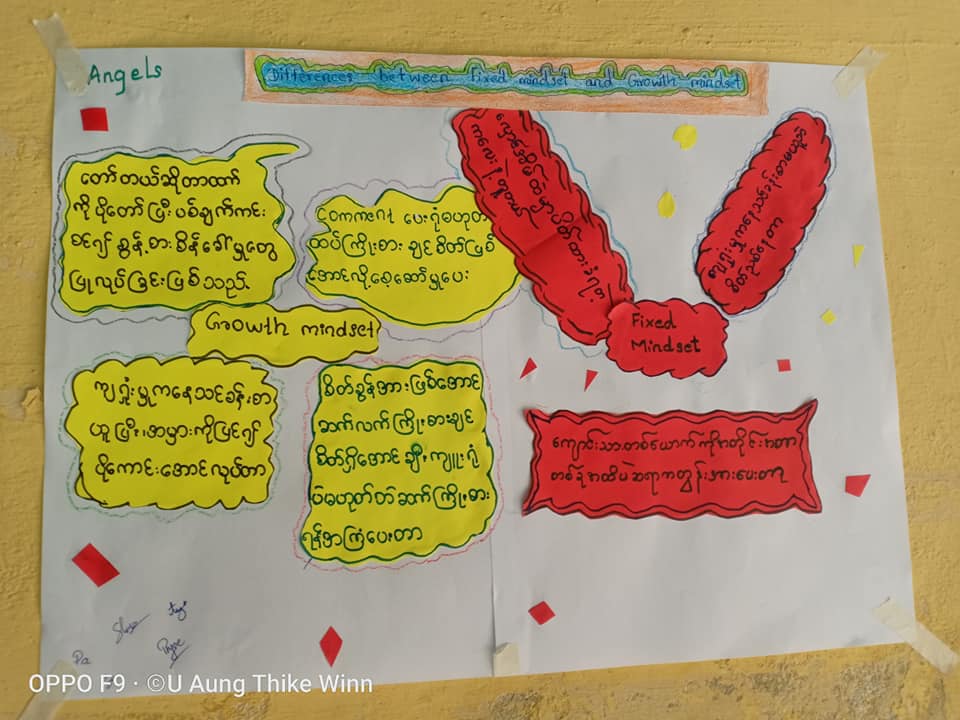 Angels
Differences between Fixed mindset and Growth mindset
တော်တယ်ဆိုတာထက်
ကို ပိုတော်ပြီး ပစ်ချက်ကင်း
စေရန် ခွန့်စား စိန်ခေါ်မှုတွေ
ပြုလုပ်ခြင်းဖြစ်သည်
Comment ပေးရုံမဟုတ်
ထပ်ကြိုးစားချင်စိတ်ဖြစ်
အောင်လို့စေ့ဆော်မှုပေး
Growth mindset
ကျရှုံးမှုကနေသင်ခန်းစာ
ယူပြီး၊အမှားကိုပြင်၍
ပိုကောင်းအောင်လုပ်တာ
စိတ်ခွန်အားဖြစ်အောင်
ဆက်လက်ကြိုးစားချင်
စိတ်ရှိအောင် ချီးကျူးရုံ
ပဲမဟုတ်ဘဲ ဆက်ကြိုးစား
ရန်အကြံပေးတာ
ကျရှုံးမှုကနေသင်ခန်းစာမယူဘဲ
စိတ်ညစ်နေတာ
Fixed
Mindset
ကျောင်းသားတစ်ယောက်ကိုအတိုင်းအတာ
တစ်ခုအထိပဲဆရာကတွန်းအားပေးတာ
OPPO F9 · ©U Aung Thike Winn